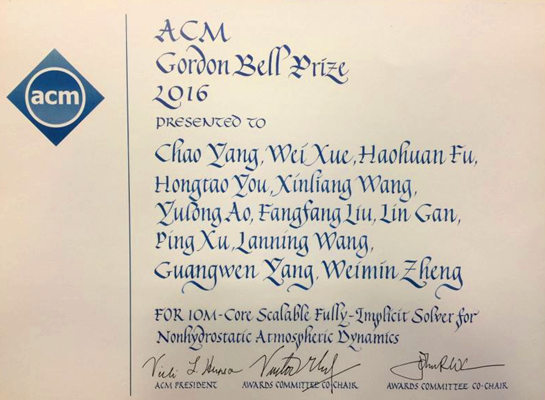 acm
ACM
Gordon Bell Prize
2016
PRESENTED TO
Chao Yang, Wei Xue, Haohuan Fu,
Hongtao You, Xinliang Wang,
Yulong Ao, Fangfang Liu, Lin Gan,
Ping Xu, Lanning Wang,
Guangwen Yang, Weimin Zheng
FOR 10M-Core Scalable Fully-Implicit Solver for
Nonhydrostatic Atmospheric Dynamics
ACM PRESIDENT AWARDS COMMITTEE CO-CHAIR AWARDS COMMITTEE CO-CHAIR